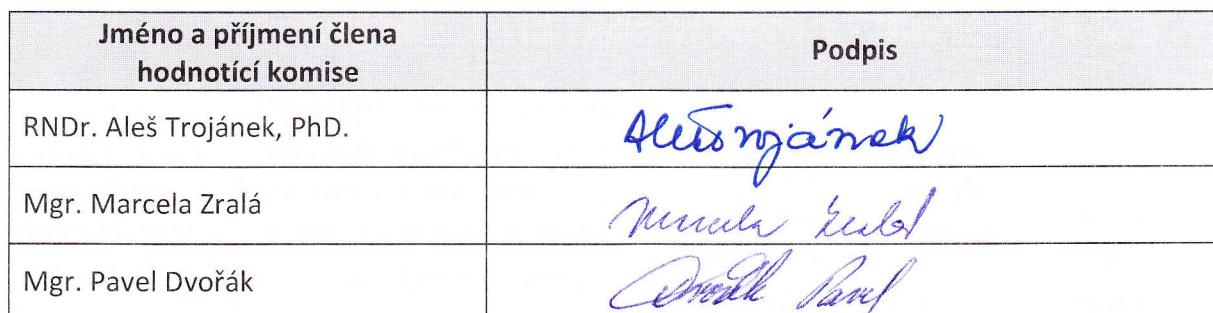 Jméno a příjmení člena
hodnotící komise
Podpis
RNDr. Aleš Trojánek, PhD.
Aleš Trojánek
Mgr. Marcela Zralá
Marcela Zralá
Mgr. Pavel Dvořák
Dvořák Pavel